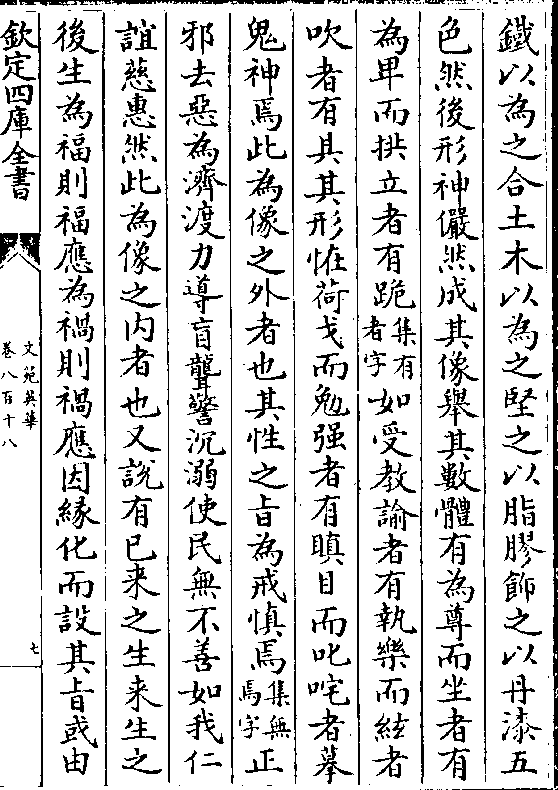 鐵以為之合土木以為之堅之以脂膠飾之以丹漆五
色然後形神儼然成其像舉其數體有為尊而坐者有
為卑而拱立者有跪集有者字如受教諭者有執樂而絃者
吹者有具其形恠荷戈而勉强者有瞋目而叱咤者摹
鬼神焉此為像之外者也其性之旨為戒慎焉集無焉字正
邪去惡為濟渡力導盲聾警沉溺使民無不善如我仁
誼慈惠然此為像之内者也又説有已来之生来生之
後生為福則福應為禍則禍應因緣化而設其旨或由
欽定四庫全書
文苑英華
卷八百十八
七